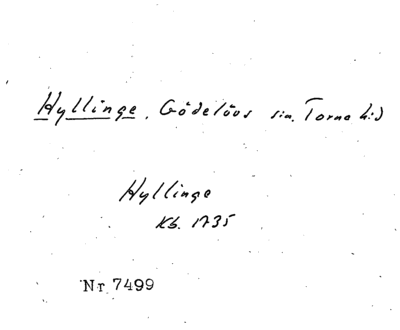 Hyllinge, Gödelövs sn. Torna hd
Hyllinge
Kb. 1735
Nr 7499